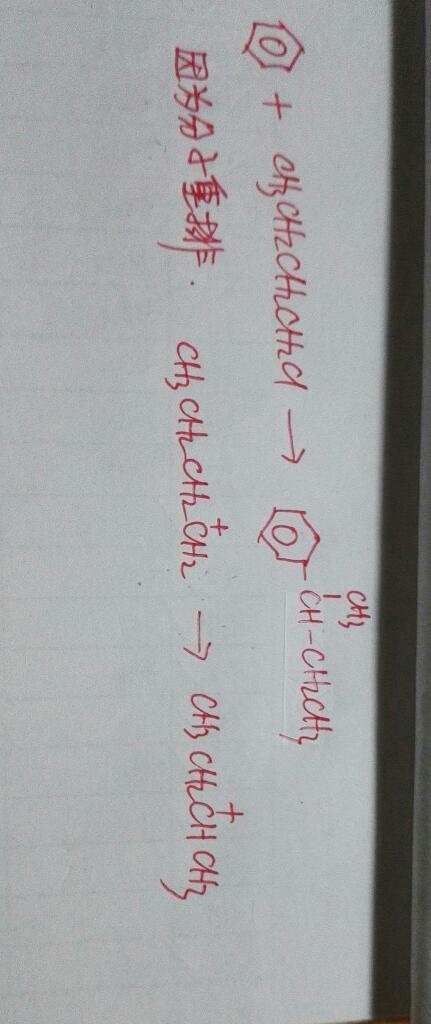 CH3
+ CH3CH2CH2CH2Cl → CH-CH2CH3
因为分子重排. CH3CH2CH2C⁺H2 → CH3CH2C⁺HCH3